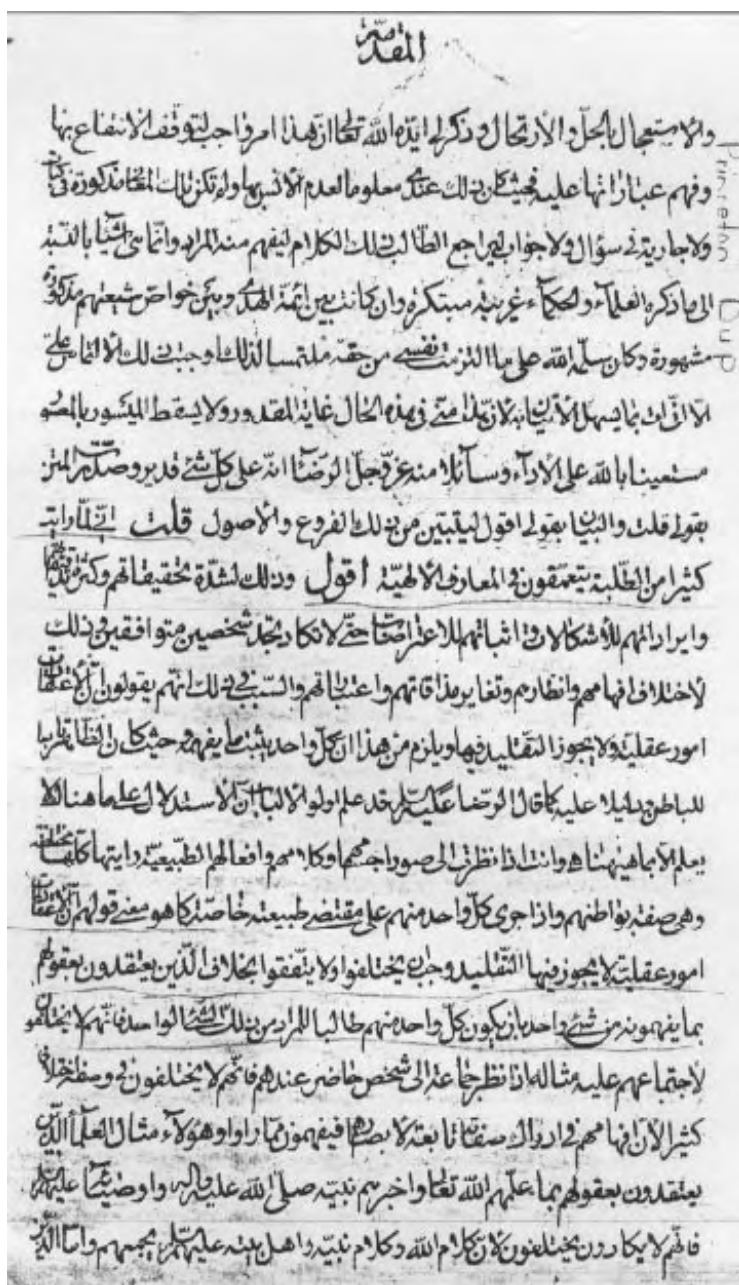 المقدمة
والاستعجال بالحل والارتحال وذكر لي ايده الله تعالى ان هذا امر واجب لتوقف الانتفاع بها
وفهم عباراتها عليه فحيث كان ذلك عندي معلوما لعدم الانس بها ولم تكن تلك المعاني مذكورة في كتاب
ولا جارية في سؤال ولا جواب ليراجع الطالب لذلك الكلام ليفهم منه المراد وانما هي اشياء بالنسبة
الى ما ذكره العلماء والحكماء غريبة مبتكرة وان كانت بين ائمة الهدى وبين خواص شيعتهم مذكورة
مشهورة وكان سلمه الله على ما التزمت نفسي من حقه ملتمسا لذلك اوجب ذلك الالتماس علي
الا ان ات بما يسهل الاتيان به لان هذا مني في هذه الحال غاية المقدور ولا يسقط الميسور بالمعسور
مستعينا بالله على الاداء وسائلا منه عز وجل الرضا انه على كل شئ قدير وصدرت المتن
بقولي قلت والبيان بقولي اقول ليتبين من ذلك الفروع والاصول قلت اني لما رايت
كثيرا من الطلبة يتعمقون في المعارف الالهية اقول وذلك لشدة تحقيقاتهم وكثرة تدقيقاتهم
وايراداتهم للاشكالات واثباتهم للاعتراضات حتى لا تكاد تجد شخصين متوافقين وذلك
لاختلاف افهامهم وانظارهم وتغاير مذاقاتهم واعتباراتهم والسبب في ذلك انهم يقولون ان الاعتقادات
امور عقلية ولا يجوز التقليد فيها ويلزم من هذا ان كل واحد يثبت ما يفهم وحيث كان الظاهر
للباطن ودليلا عليه كما قال الرضا عليه السلام قد علم اولوا الالباب ان الاستدلال على ما هنالك لا
يعلم الا بما هيهنا وانت اذا نظرت الى صور اجسامهم وكلامهم وافعالهم الطبيعية رايتها كلها مختلفة
وهي صفة بواطنهم واذا جرى كل واحد منهم على مقتضى طبيعته خاصة كما هو معنى قولهم ان الاعتقادات
امور عقلية لا يجوز فيها التقليد وجب ان يختلفوا ولا يتفقوا بخلاف الذين يعتقدون بعقولهم
بما يفهمونه من شئ واحد بان يكون كل واحد منهم طالبا للمراد من ذلك الشئ الواحد فانهم لا يختلفون
لاجتماعهم عليه مثاله اذا نظر جماعة الى شخص حاضر عندهم فانهم لا يختلفون في وصفه اختلافا
كثيرا لان افهامهم في ادراك صفاته تابعة لابصارها فيفهمون مما راوا وهؤلاء مثال العلماء الذين
يعتقدون بعقولهم بما علمهم الله تعالى واخبرهم نبيه صلى الله عليه واله واوصيائه عليهم السلام
فانهم لا يكادون يختلفون لان كلام الله وكلام نبيه واهل بيته عليهم السلام يجمعهم واما الذين
Princeton Dup